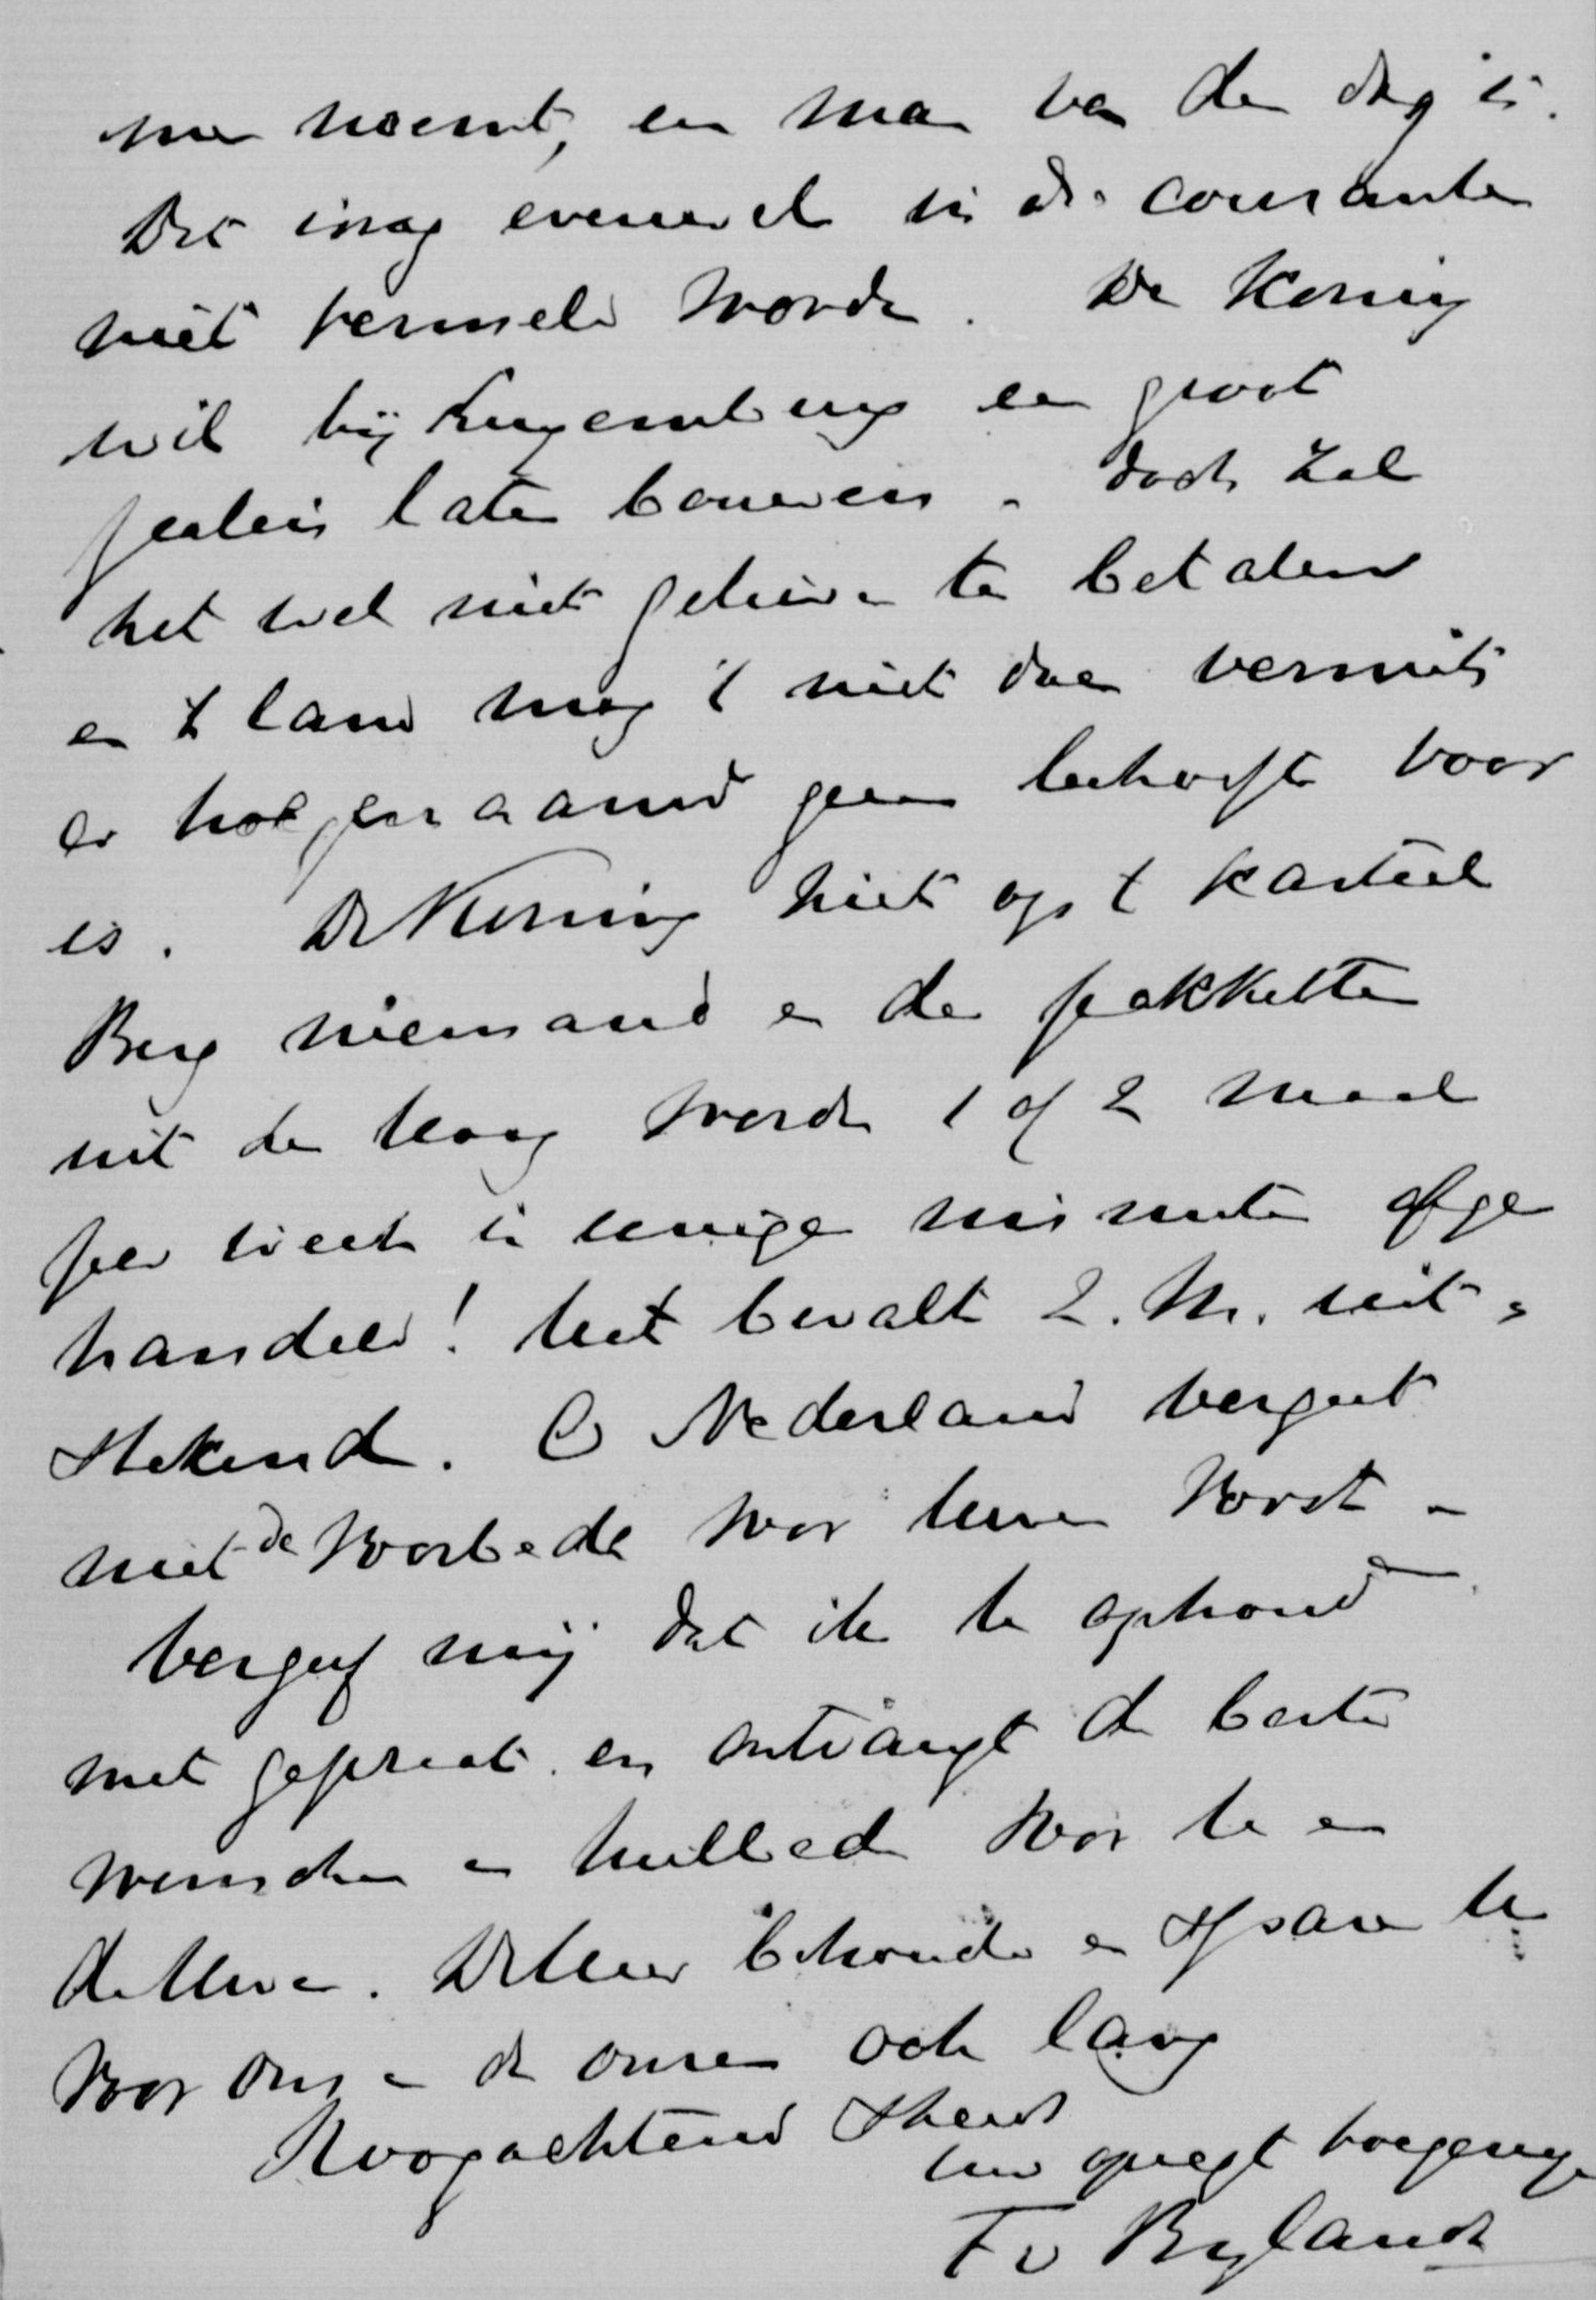 men noemt, en man van den dag is.
Dit mag evenwel in de couranten
niet vermeld worden. De Koning
wil bij Luxemburg een groot
paleis laten bouwen, doch zal
het wel niet gelieven te betalen
en 't land mag 't niet doen vermits
er hoegenaamd geen behoefte voor
is. De Koning ziet op 't kasteel
Berg niemand en de pakketten
uit den Haag worden 1 of 2 maal
per week in eenige minuten afge
handeld! Het bevalt Z. M. uit=
stekend. O Nederland vergeet
niet de voorbede voor uwen Vorst –
Vergeef mij dat ik U ophoud
met gepraat en ontvangt de beste
wenschen en heilbeden voor U en
de Uwen. De Heer behoude en spare U
voor ons en de onzen ook lang
Hoogachtend steeds
Uw opregt toegenegen
F v Bylandt